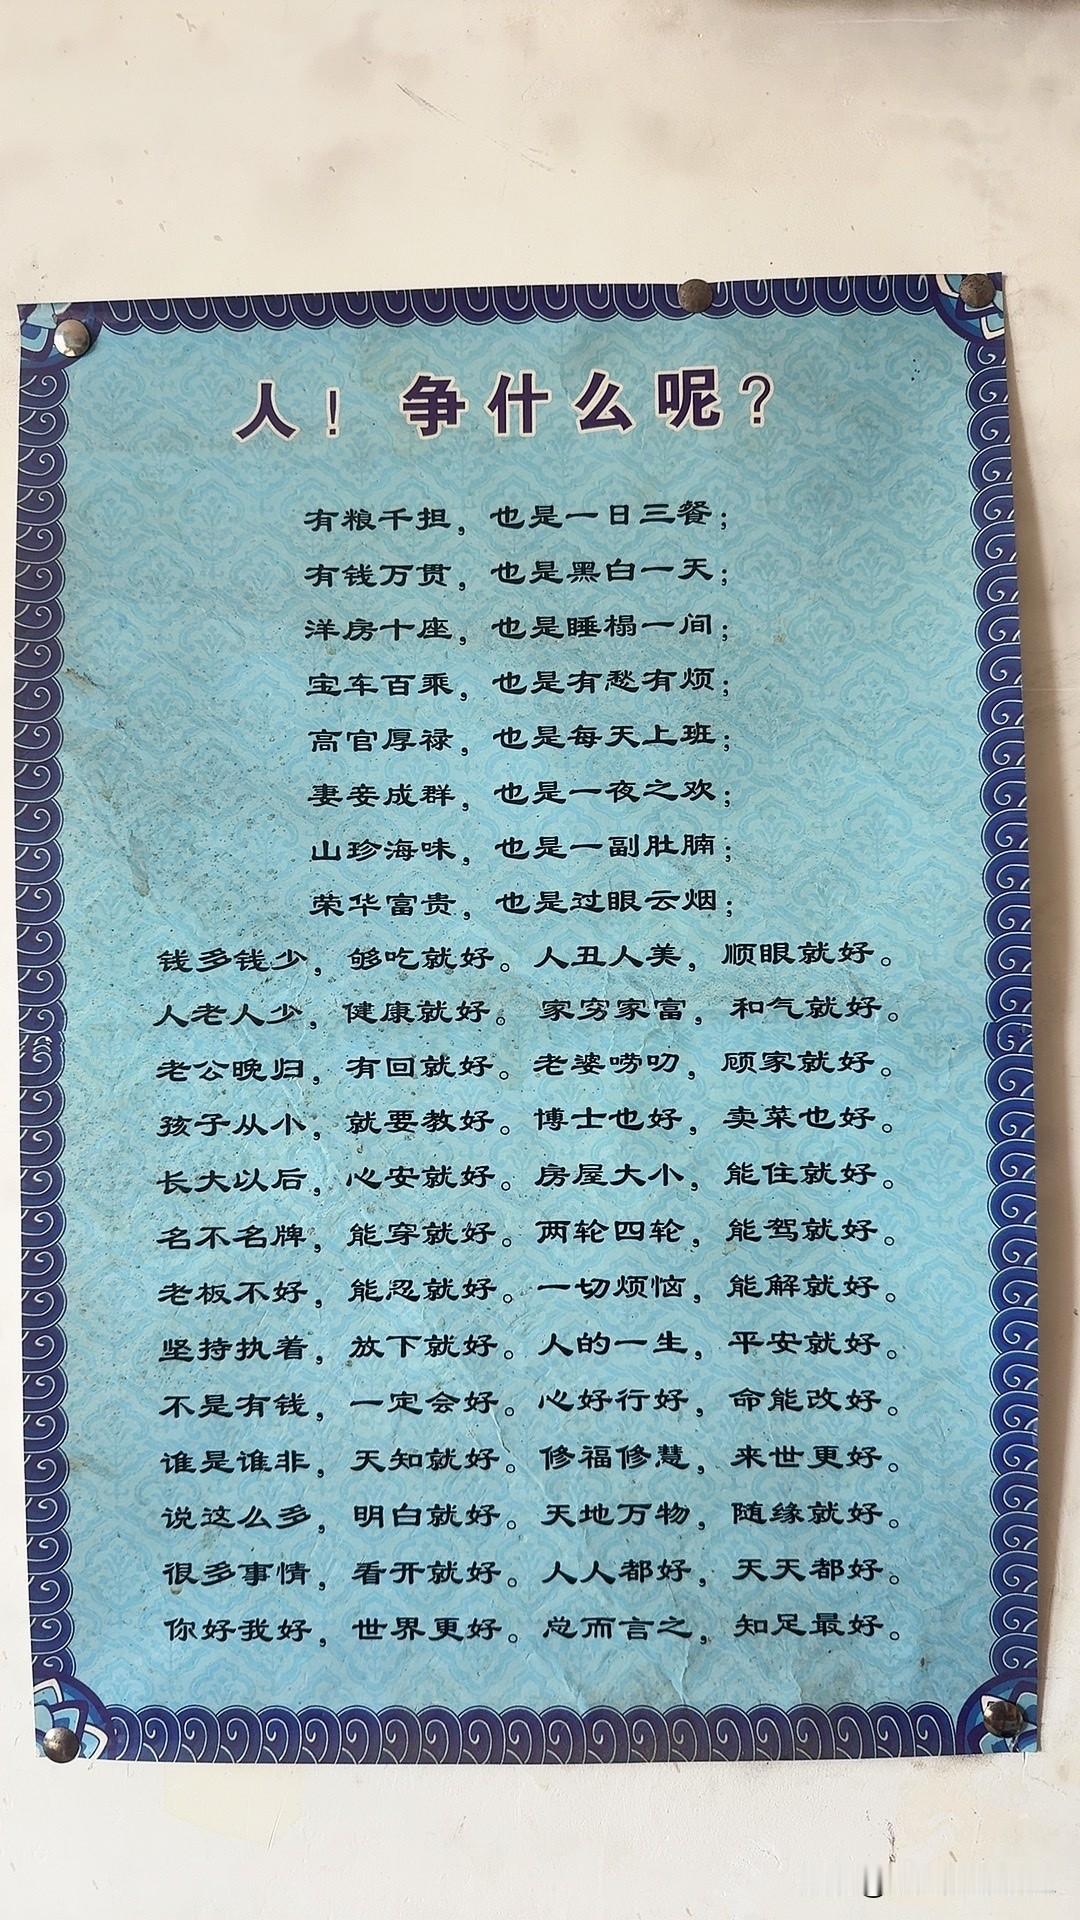 人！争什么呢？
有粮千担，也是一日三餐；
有钱万贯，也是黑白一天；
洋房十座，也是睡榻一间；
宝车百乘，也是有愁有烦；
高官厚禄，也是每天上班；
妻妾成群，也是一夜之欢；
山珍海味，也是一副肚腩；
荣华富贵，也是过眼云烟；
钱多钱少，够吃就好。人丑人美，顺眼就好。
人老人少，健康就好。家穷家富，和气就好。
老公晚归，有回就好。老婆唠叨，顾家就好。
孩子从小，就要教好。博士也好，卖菜也好。
长大以后，心安就好。房屋大小，能住就好。
名不名牌，能穿就好。两轮四轮，能驾就好。
老板不好，能忍就好。一切烦恼，能解就好。
坚持执着，放下就好。人的一生，平安就好。
不是有钱，一定会好。心好行好，命能改好。
谁是谁非，天知就好。修福修慧，来世更好。
说这么多，明白就好。天地万物，随缘就好。
很多事情，看开就好。人人都好，天天都好。
你好我好，世界更好。总而言之，知足最好。